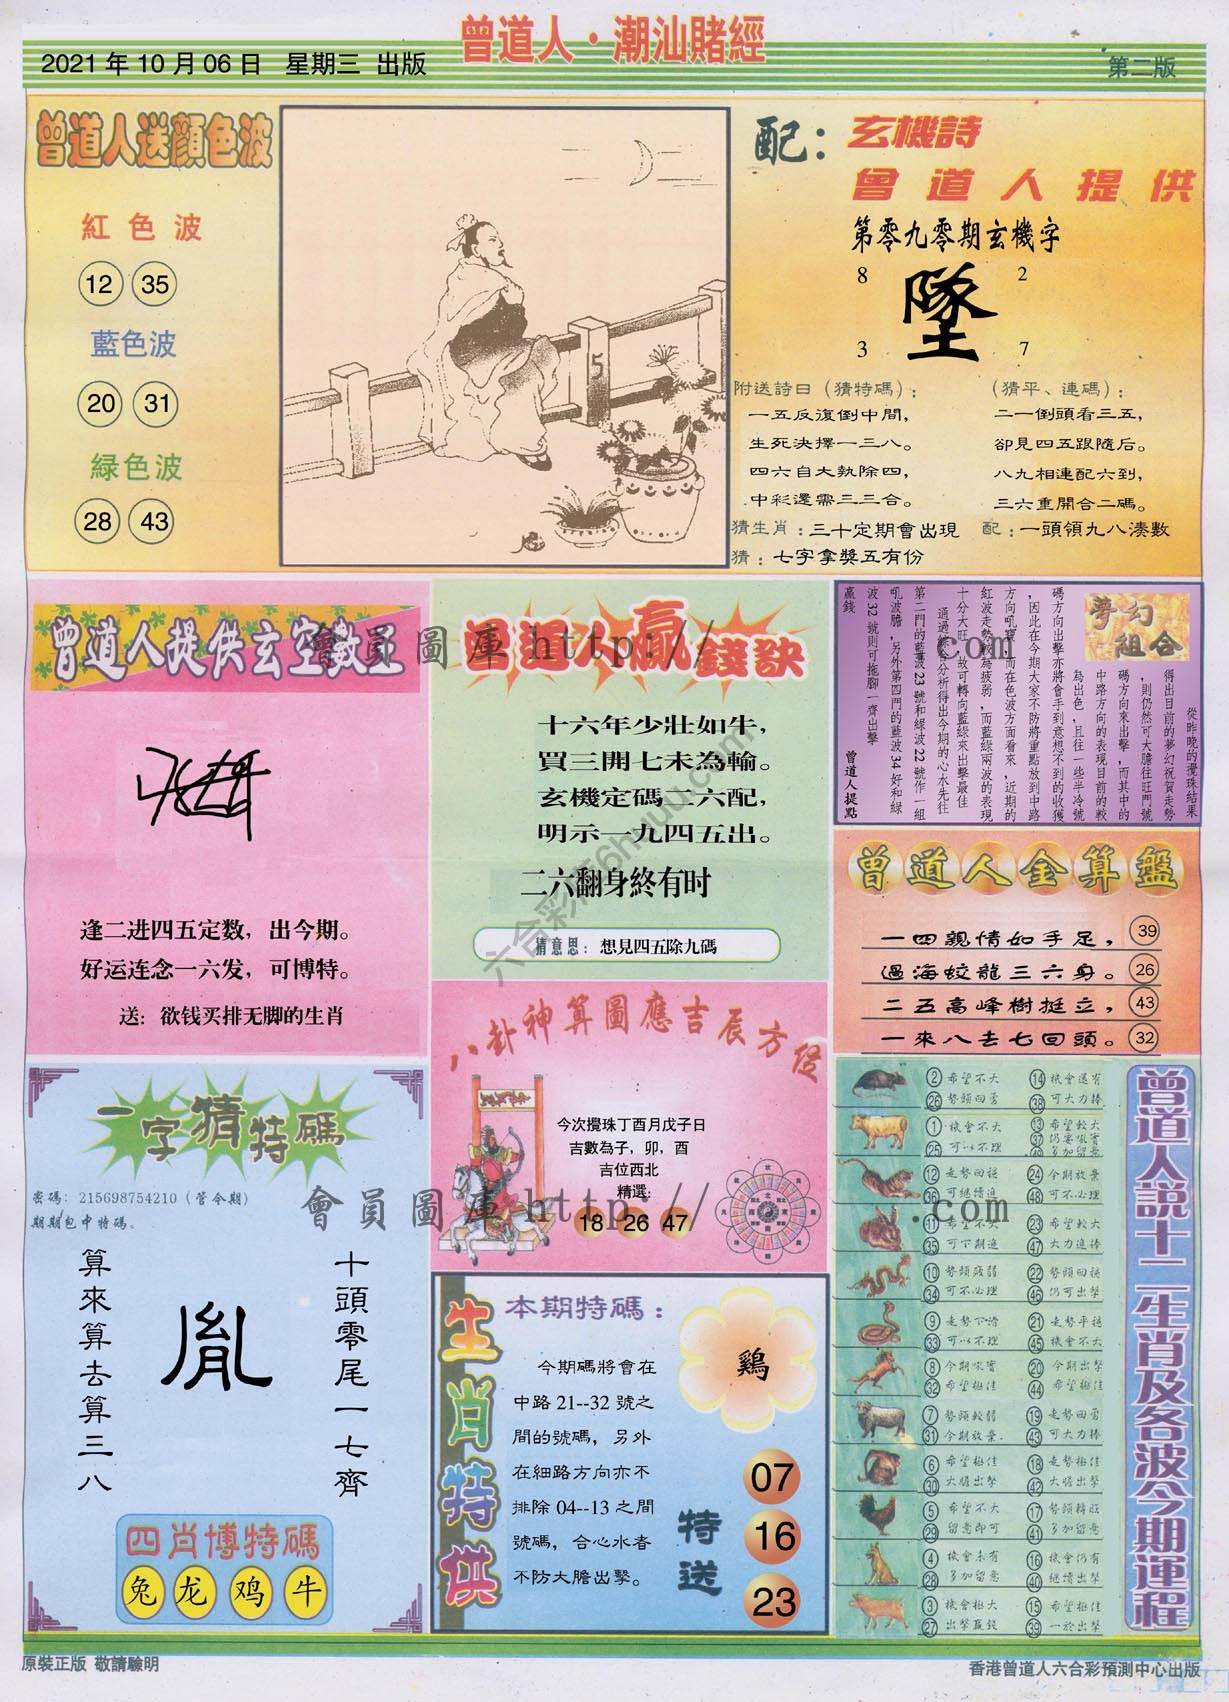 曾道人·潮汕賭經
2021年10月06日 星期三 出版
第二版
曾道人送顏色波
紅色波
12 35
藍色波
20 31
緑色波
28 43
5
配：玄機詩
曾道人提供
第零九零期玄機字
8 2
墜
3 7
附送詩曰（猜特碼）：
一五反復倒中間，
生死決擇一三八。
四六自大執除四，
中彩還需三三合。
（猜平、連碼）：
二一倒頭看三五，
卻見四五跟隨后。
八九相連配六到，
三六重開合二碼。
猜生肖：三十定期會出現 配：一頭領九八湊數
猜：七字拿獎五有份
曾道人提供玄空數王
逢二进四五定数，出今期。
好运连念一六发，可博特。
送：欲钱买排无脚的生肖
曾道人贏錢訣
十六年少壯如牛，
買三開七未為輸。
玄機定碼二六配，
明示一九四五出。
二六翻身終有时
猜意思：想見四五除九碼
夢幻組合
從昨晚的攪珠結果
得出目前的夢幻祝賀走勢
，則仍然可大膽往旺門號
碼方向來出擊，而其中的
中路方向的表現目前的較
為出色，且往一些半冷號
碼方向出擊亦將會手到意想不到的收獲
，因此在今期大家不防將重點放到中路
方向吼寶，而在色波方面看來，近期的
紅波走勢較為疲弱，而藍綠兩波的表現
十分大旺，故可轉向藍綠來出擊最佳
通過綜合分析得出今期的心水先往
第二門的藍波23號和緑波22號作一組
吼波膽，另外第四門的藍波34好和綠
波32號則可拖腳一齊出擊
贏錢
曾道人提點
曾道人金算盤
一四親情如手足， 39
過海蛟龍三六身。 26
二五高峰樹挺立， 43
一來八去七回頭。 32
八卦神算圖應吉辰方位
今次攪珠丁酉月戊子日
吉數為子，卯，酉
吉位西北
精選：
18 26 47
一字猜特碼
密碼：215698754210（管今期）
期期包中特碼。
十頭零尾一七齊
胤
算來算去算三八
四肖博特碼
兔 龙 鸡 牛
生肖特供
本期特碼：
今期碼將會在
中路21--32號之
間的號碼，另外
在細路方向亦不
排除04--13之間
號碼，合心水者
不防大膽出擊。
鷄
特送
07
16
23
曾道人説十二生肖及各波今期運程
2 希望不大 14 機會還有
26 勢頭回勇 38 可大力捧
1 機會不大 13 希望較大
25 可以不理 37 仍要吼實
49 多加留意
12 走勢回穩 24 今期放棄
36 可繼續追 48 可不必理
11 希望不大 23 希望較大
35 可下期追 47 大力追捧
10 勢頭疲弱 22 勢頭回穩
34 可不必理 46 仍可出擊
9 走勢下滑 21 走勢平穩
33 可以不理 45 機會不大
8 今期吼實 20 今期出擊
32 希望極佳 44 希望極佳
7 勢頭較弱 19 走勢回勇
31 今期放棄 43 可大力捧
6 希望極佳 18 走勢極佳
30 大膽出擊 42 大膽出擊
5 希望不大 17 勢頭轉旺
29 留意即可 41 多加留意
4 機會未有 16 機會仍有
28 多加留意 40 繼續出擊
3 機會極大 15 希望極佳
27 出擊贏錢 39 一於出擊
原裝正版 敬請驗明
香港曾道人六合彩預測中心出版
會員圖庫 http:// .com
會員圖庫 http:// .com